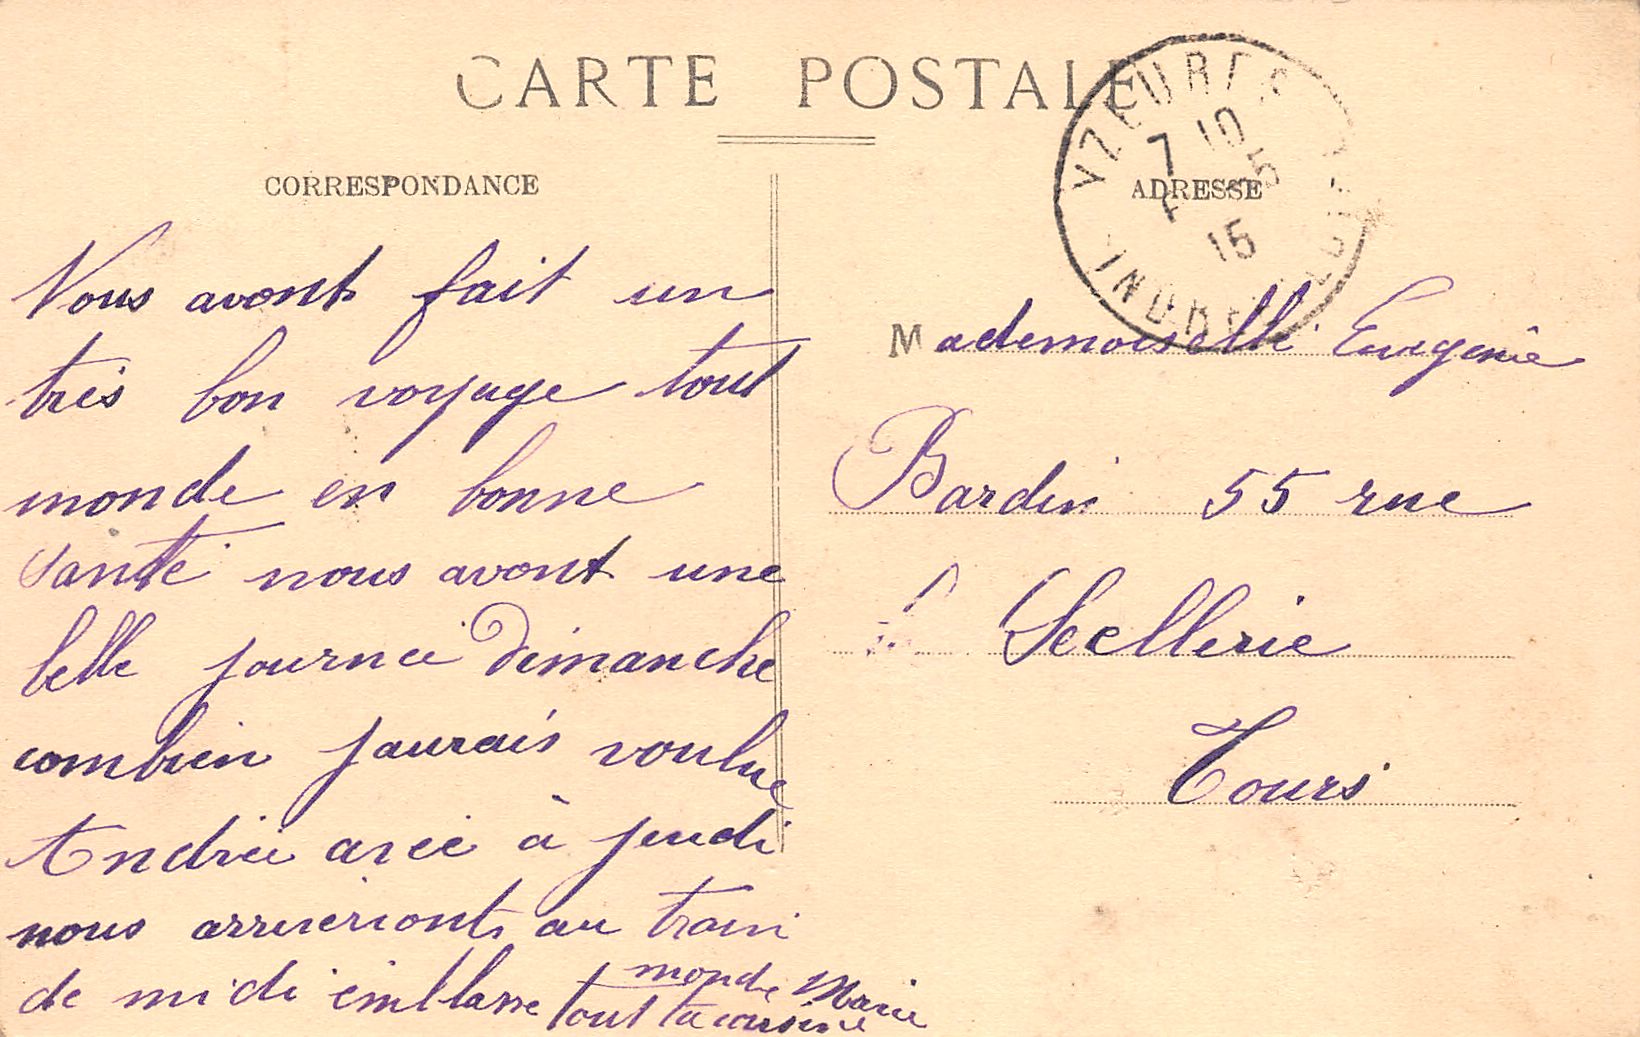 CARTE POSTALE
CORRESPONDANCE
ADRESSE
YZEURES
7 10
5
15
INDRE
Nous avont fait un
très bon voyage tout
monde en bonne
santé nous avont une
belle journeé Dimanche
combien jaurais voulue
Andreé avec à jeudi
nous arriveriont au train
de midi embllasse tout monde Marie
ta cousine
Mademoiselle Eugenie
Bardin 55 rue
Scellerie
Tours